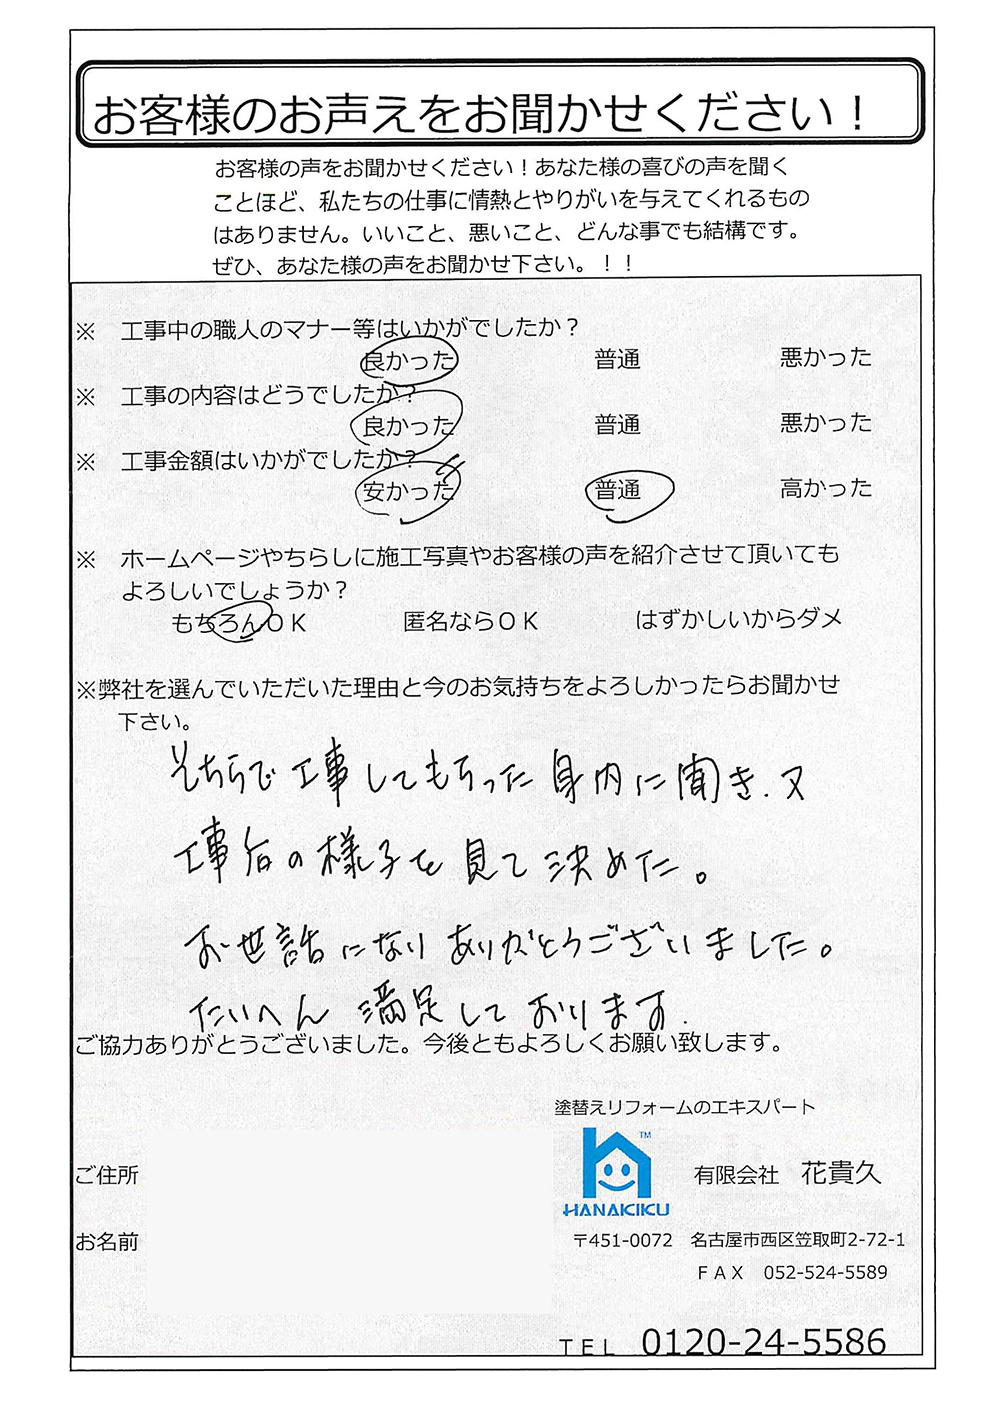 お客様のお声えをお聞かせください！
お客様の声をお聞かせください！あなた様の喜びの声を聞く
ことほど、私たちの仕事に情熱とやりがいを与えてくれるもの
はありません。いいこと、悪いこと、どんな事でも結構です。
ぜひ、あなた様の声をお聞かせ下さい。！！
※　工事中の職人のマナー等はいかがでしたか？
良かった　普通　悪かった
※　工事の内容はどうでしたか？
良かった　普通　悪かった
※　工事金額はいかがでしたか？
安かった　普通　高かった
※　ホームページやちらしに施工写真やお客様の声を紹介させて頂いても
よろしいでしょうか？
もちろんＯＫ　匿名ならＯＫ　はずかしいからダメ
※弊社を選んでいただいた理由と今のお気持ちをよろしかったらお聞かせ
下さい。
そちらで工事してもらった身内に聞き、又
工事后の様子を見て決めた。
お世話になりありがとうございました。
たいへん満足しております.
ご協力ありがとうございました。今後ともよろしくお願い致します。
塗替えリフォームのエキスパート
TM
HANAKIKU
ご住所
有限会社　花貴久
お名前
〒451-0072　名古屋市西区笠取町2-72-1
ＦＡＸ　052-524-5589
ＴＥＬ　0120-24-5586